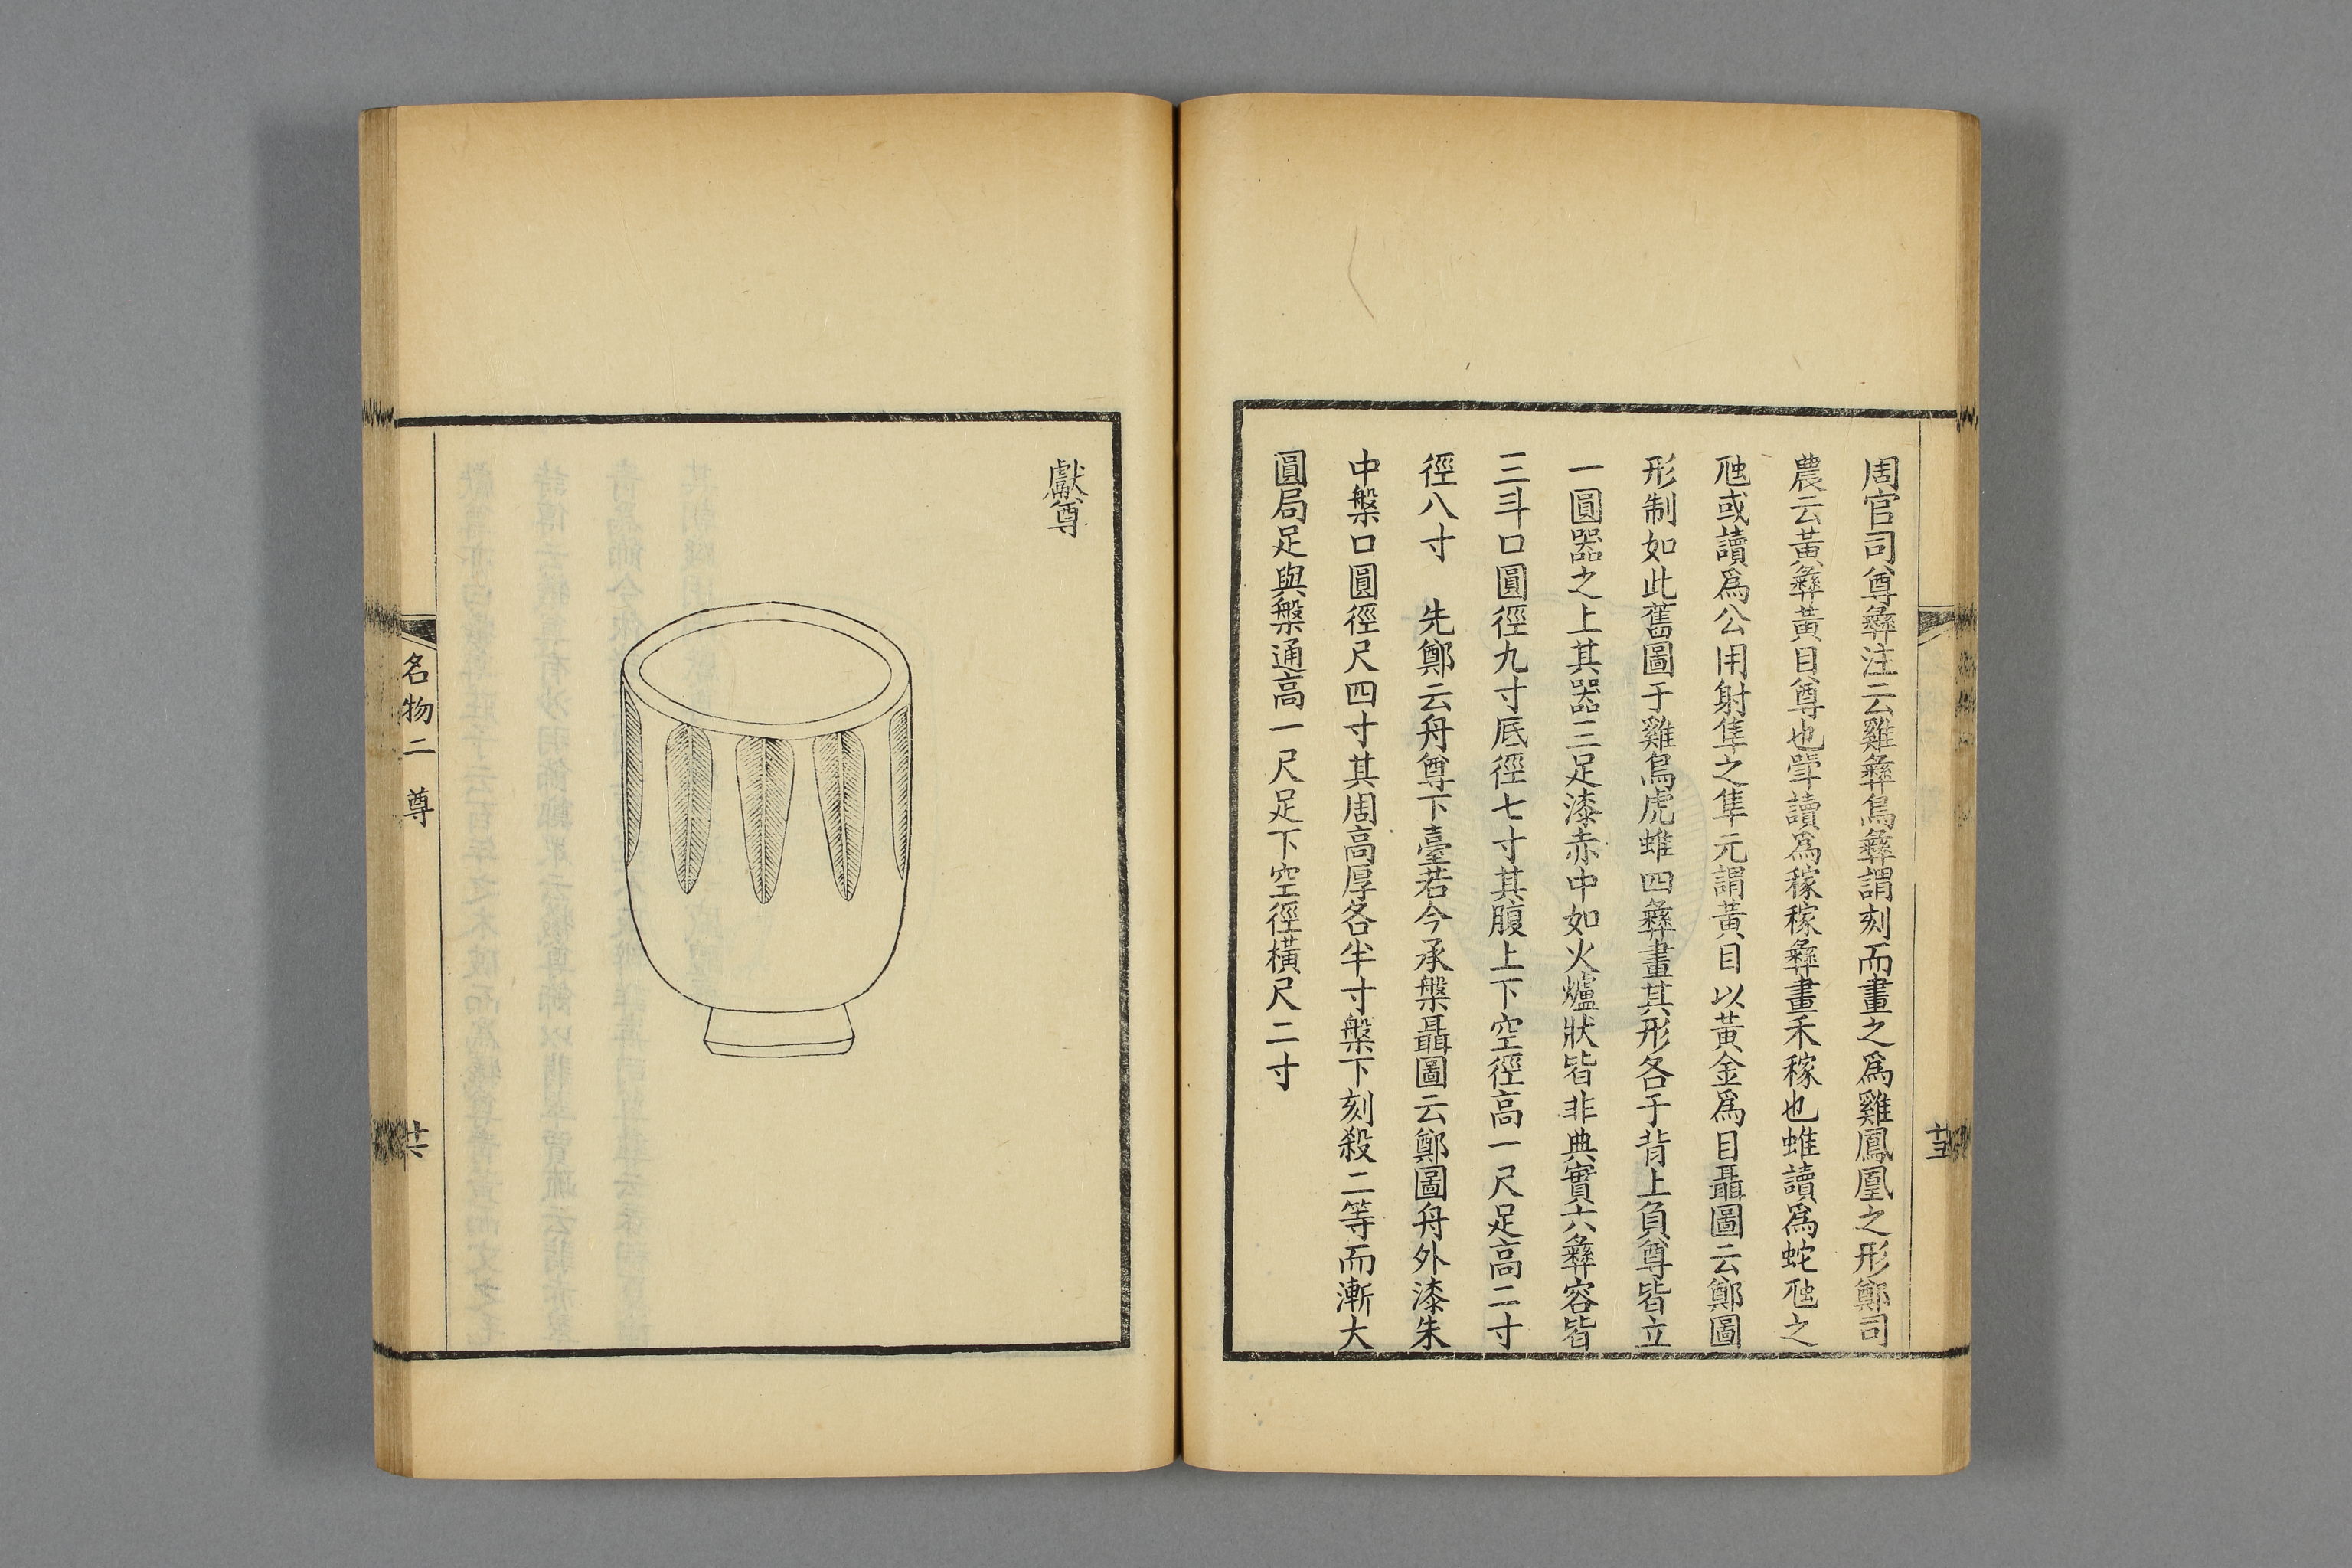 周官司尊彝注云雞彝鳥彝謂刻而畫之爲雞鳳凰之形鄭司
農云黃彝黃目尊也斝讀爲稼稼彝畫禾稼也蜼讀爲蛇虺之
虺或讀爲公用射隼之隼元謂黃目以黃金爲目聶圖云鄭圖
形制如此舊圖于雞鳥虎蜼四彝畫其形各于背上負尊皆立
一圓器之上其器三足漆赤中如火爐狀皆非典實六彝容皆
三斗口圓徑九寸底徑七寸其腹上下空徑高一尺足高二寸
徑八寸　先鄭云舟尊下臺若今承槃聶圖云鄭圖舟外漆朱
中槃口圓徑尺四寸其周高厚各半寸槃下刻殺二等而漸大
圓局足與槃通高一尺足下空徑橫尺二寸
十五
獻尊
名物二　尊
十六